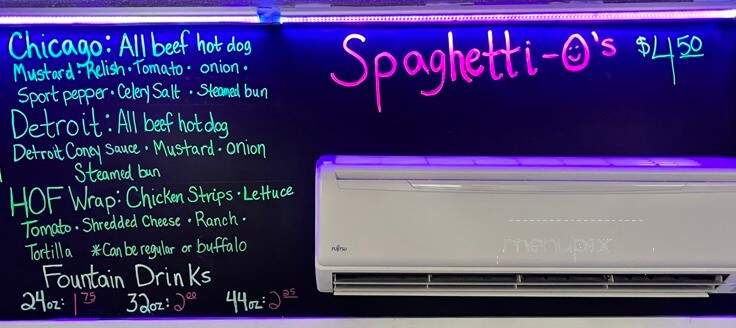 Chicago: All beef hot dog
Mustard · Relish · Tomato · onion ·
Sport pepper · Celery Salt · Steamed bun
Detroit: All beef hot dog
Detroit Coney Sauce · Mustard · onion
Steamed bun
HOF Wrap: Chicken Strips · Lettuce
Tomato · Shredded Cheese · Ranch ·
Tortilla *Can be regular or buffalo
Fountain Drinks
24oz: 1 75 32oz: 2 00 44oz: 2 25
Spaghetti-O's $4 50
FUJITSU
menupix